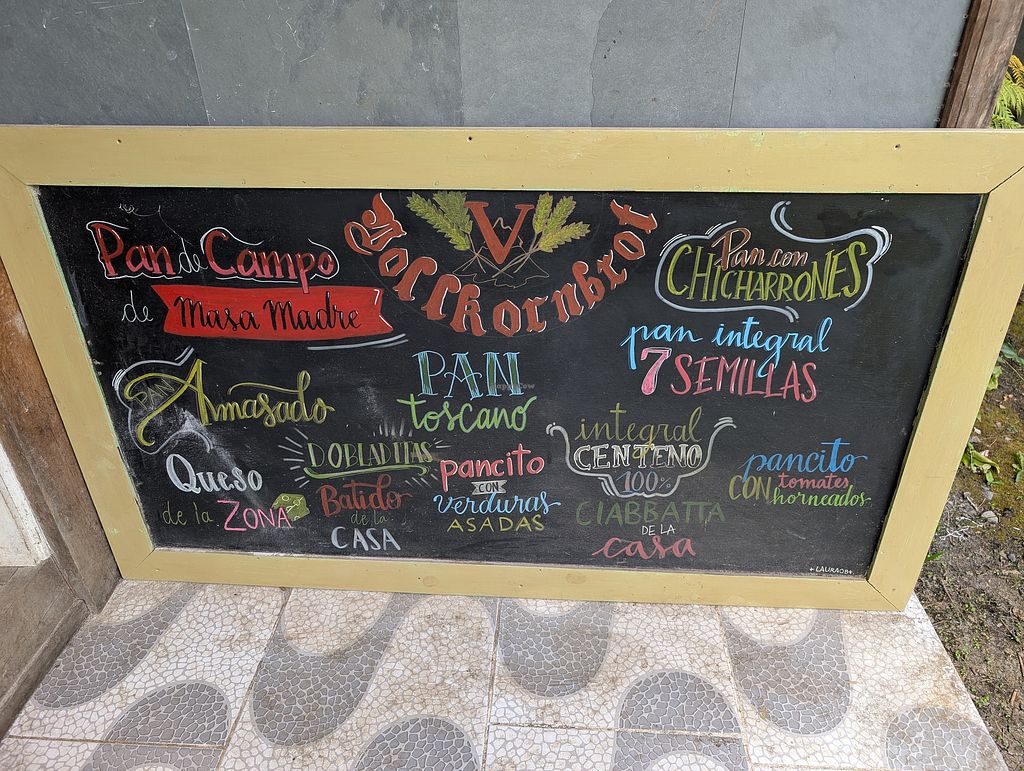 Vollkornbrot
V
Pan de Campo
de Masa Madre
Pan con
CHICHARRONES
pan integral
7 SEMILLAS
PAN
Amasado
PAN
toscano
DOBLADITAS
integral
CENTENO
100%
Queso
de la ZONA
Batido
de la
CASA
pancito
CON
verduras
ASADAS
CIABBATTA
DE LA
casa
pancito
CON tomates
horneados
+LAURAOB+
HappyCow